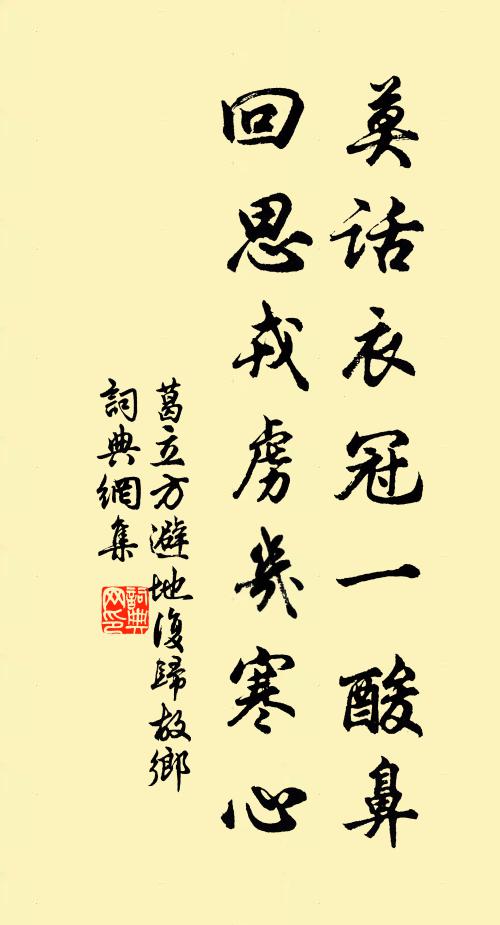 莫話衣冠一酸鼻
回思戎虜幾寒心
葛立方避地復歸故鄉
詞典網集
詞典
网印